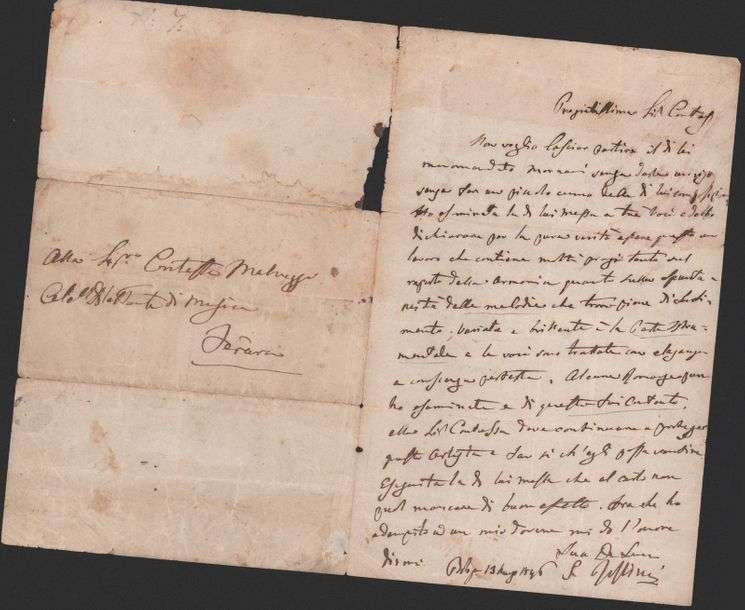 Alla Sig.ra Contessa Malvezzi
Dilettante di Musica
Pregiatissima Sig.ra Contessa
Non voglio lasciar partire il di lei
raccomandato senza
senza far un piccolo cenno delle di lui composizioni
Ho esaminata la di lui Messa a tre voci e debbo
dichiarare per la pura verità essere questo un
lavoro che contiene molti pregi tanto nel
rapporto della Armonia quanto sulla
neità delle melodie che trovo piene di
mento, variata e brillante è la Parte Istru=
mentale e le voci sono trattate con eleganza
e conoscenza perfetta. Alcune Romanze pure
ho esaminate e di queste fui contento,
ella Sig.ra Contessa deve continuare a proteggere
questo Artista e far sì ch'egli possa sentire
eseguita la di lui messa che al certo non
può mancare di buon effetto. Ora che ho
adempito ad un mio dovere mi do l'onore
dirmi
Suo
13 1846 G. Rossini